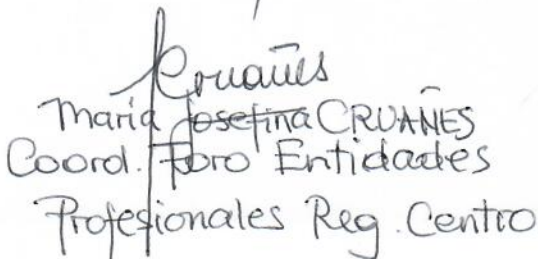 Cruañes
María Josefina CRUAÑES
Coord. Foro Entidades
Profesionales Reg. Centro